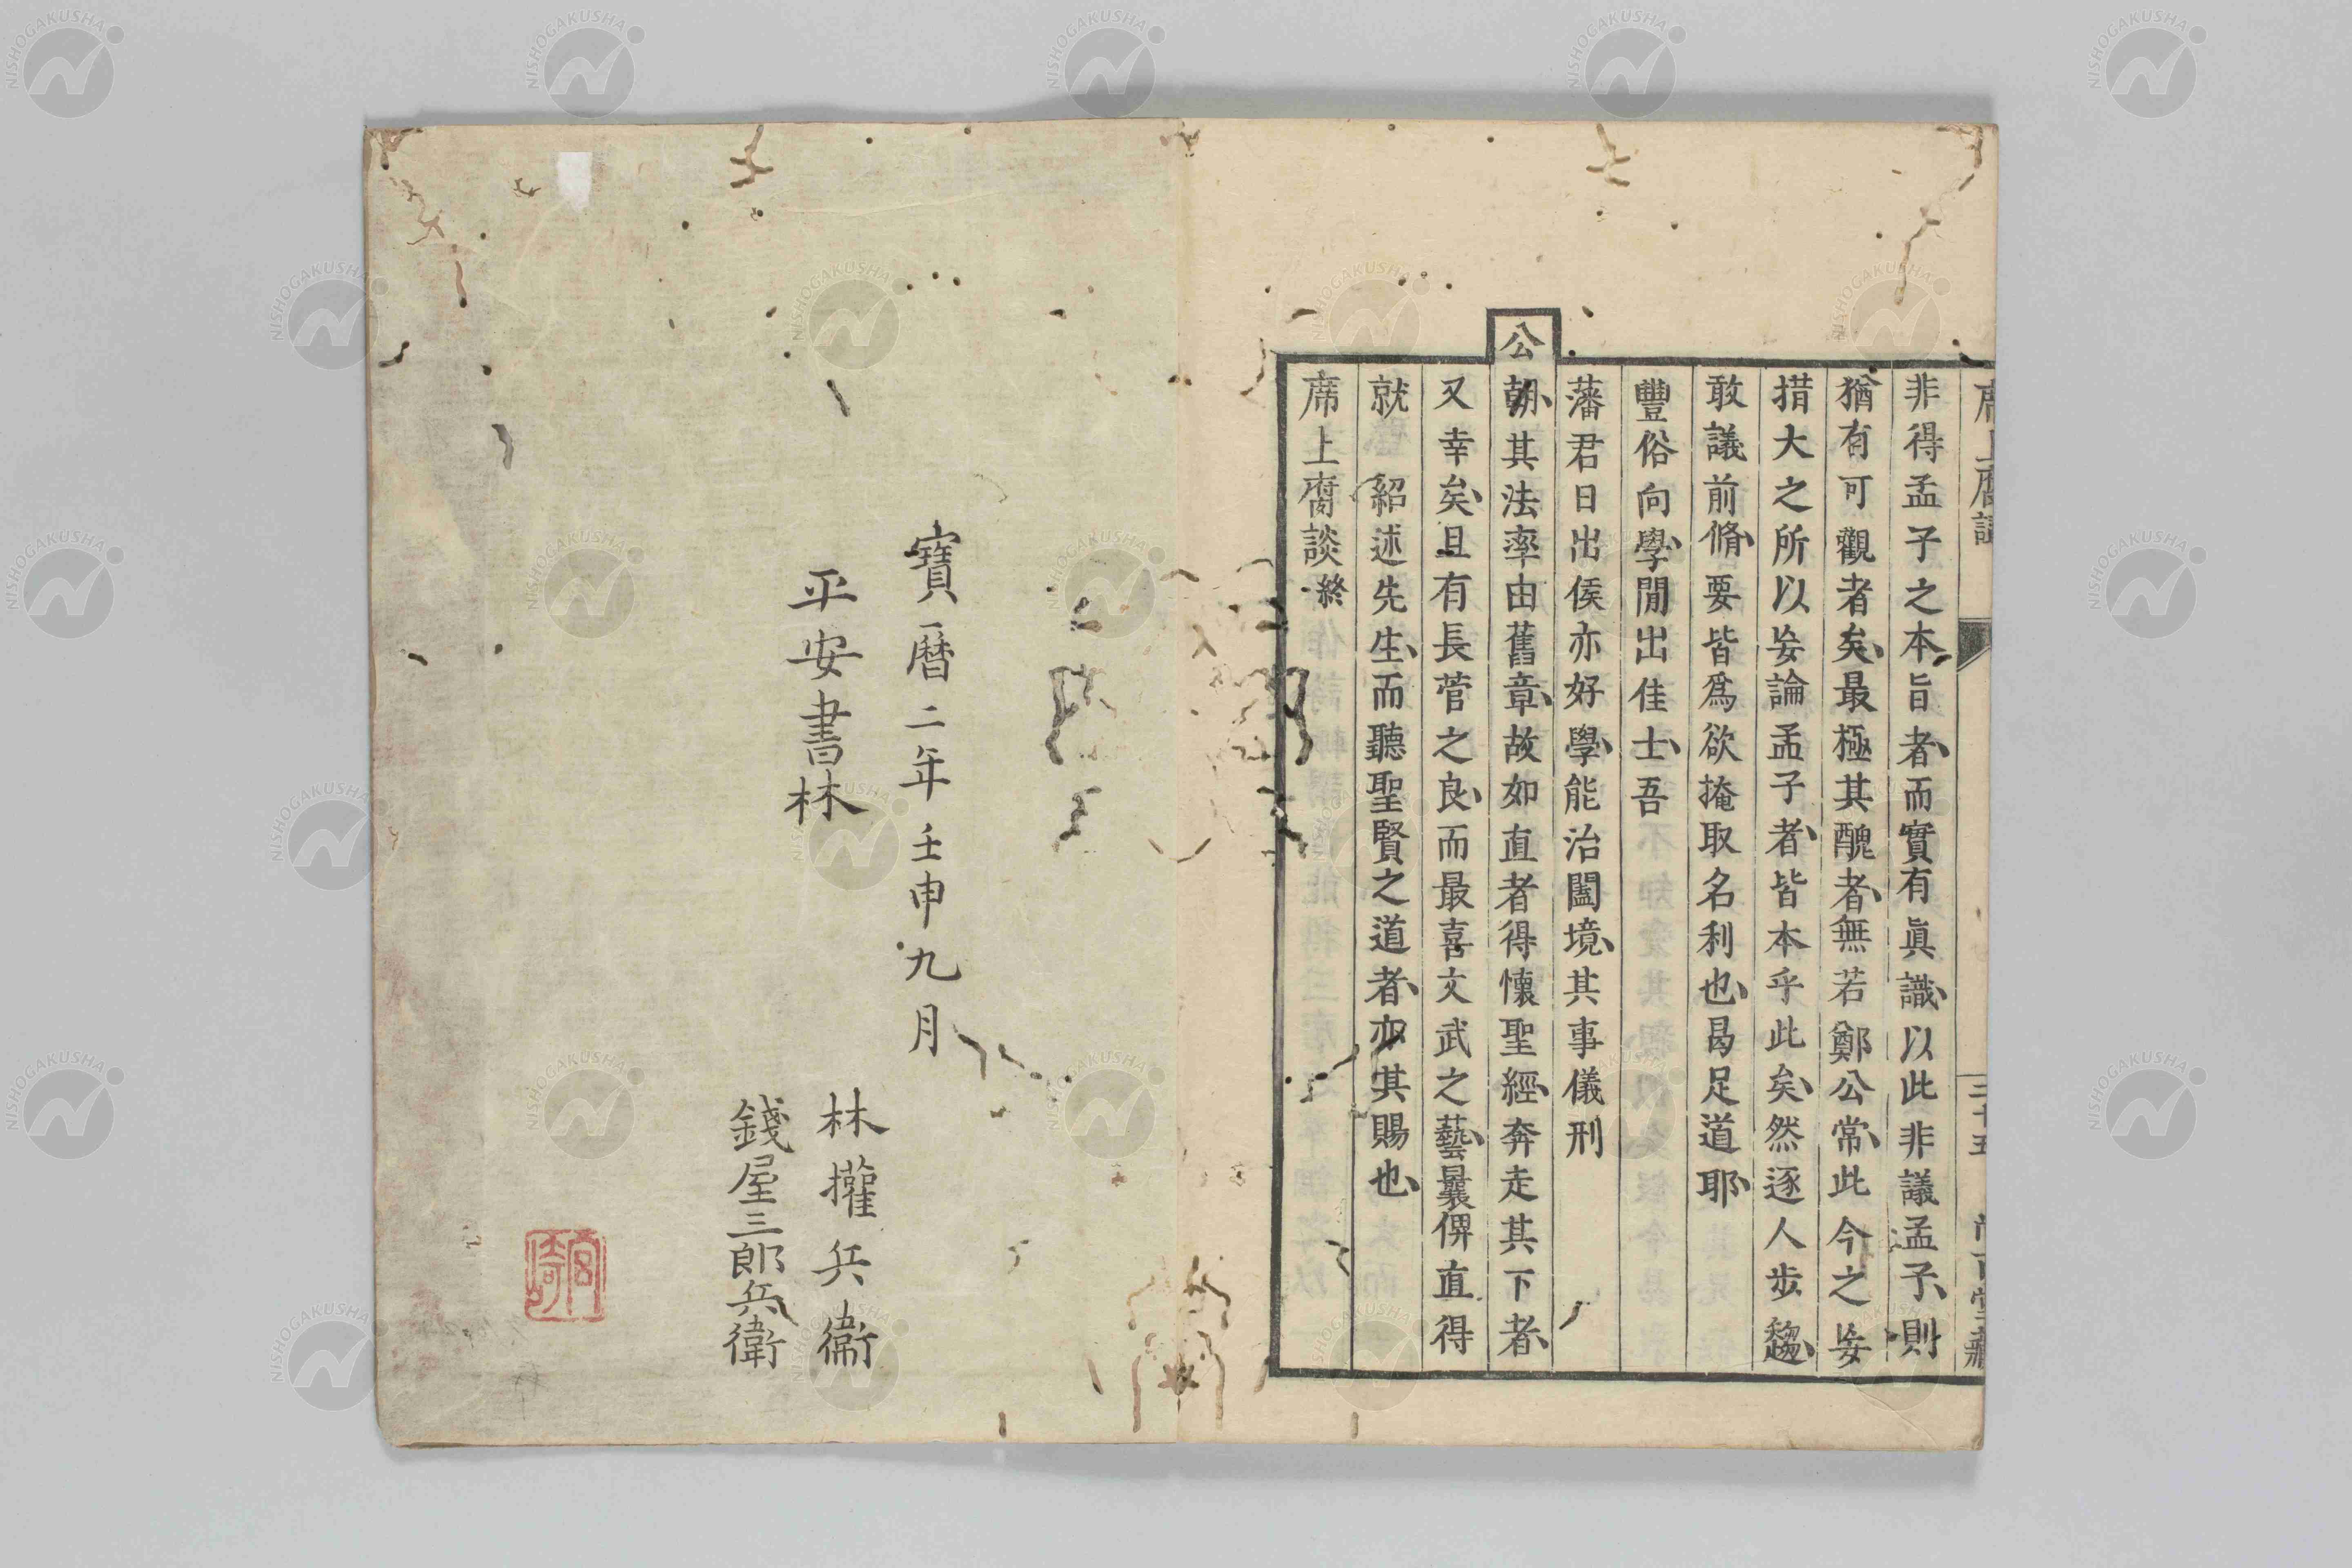 非得孟子之本旨者而實有眞識以此非議孟子則
猶有可觀者矣最極其醜者無若鄭公常此今之妄
措大之所以妄論孟子者皆本乎此矣然逐人步趨
敢議前脩要皆爲欲掩取名利也曷足道耶
豐俗向學閒出佳士吾
藩君日出侯亦好學能治闔境其事儀刑
公朝其法率由舊章故如直者得懷聖經奔走其下者
又幸矣且有長菅之良而最喜文武之藝曩俾直得
就 紹述先生而聽聖賢之道者亦其賜也
席上腐談終
寶曆二年壬申九月
平安書林
林權兵衞
錢屋三郎兵衛
NISHOGAKUSHA